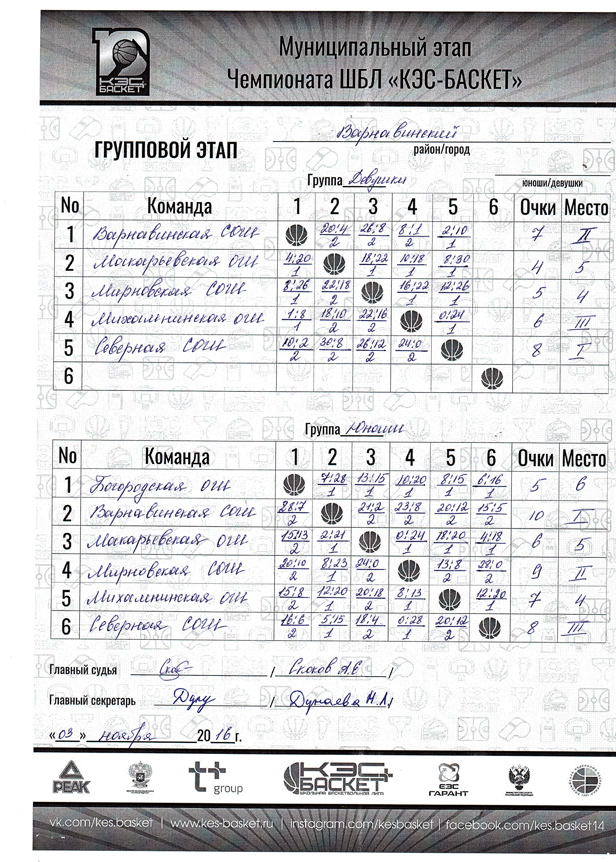 КЭС-БАСКЕТ
Муниципальный этап
Чемпионата ШБЛ «КЭС-БАСКЕТ»
ГРУППОВОЙ ЭТАП Варнавинский
район/город
Группа Девушки
юноши/девушки
No Команда 1 2 3 4 5 6 Очки Место
1 Варнавинская СОШ 20:4 26:8 8:1 2:10 7 II
2 2 2 1
2 Макарьевская ОШ 4:20 18:22 10:18 8:30 4 5
1 1 1 1
3 Мирновская СОШ 8:26 22:18 16:22 12:26 5 4
1 2 1 1
4 Михаленинская ОШ 1:8 18:10 22:16 0:24 6 III
1 2 2 1
5 Северная СОШ 10:2 30:8 26:12 24:0 8 I
2 2 2 2
6
Группа Юноши
No Команда 1 2 3 4 5 6 Очки Место
1 Богородская ОШ 7:28 13:15 10:20 8:15 6:16 5 6
1 1 1 1 1
2 Варнавинская СОШ 28:7 21:2 23:8 20:12 15:5 10 I
2 2 2 2 2
3 Макарьевская ОШ 15:13 2:21 0:24 18:20 4:18 6 5
2 1 1 1 1
4 Мирновская СОШ 20:10 8:23 24:0 13:8 28:0 9 II
2 1 2 2 2
5 Михаленинская ОШ 15:8 12:20 20:18 8:13 12:20 7 4
2 1 2 1 1
6 Северная СОШ 16:6 5:15 18:4 0:28 20:12 8 III
2 1 2 1 2
Главный судья / Скоков А.С /
Главный секретарь / Дунаева Н.Л /
«03» ноября 2016 г.
PEAK t+ group КЭС-БАСКЕТ ЕЭС ГАРАНТ
ШКОЛЬНАЯ БАСКЕТБОЛЬНАЯ ЛИГА
vk.com/kes.basket | www.kes-basket.ru | instagram.com/kesbasket | facebook.com/kes.basket14